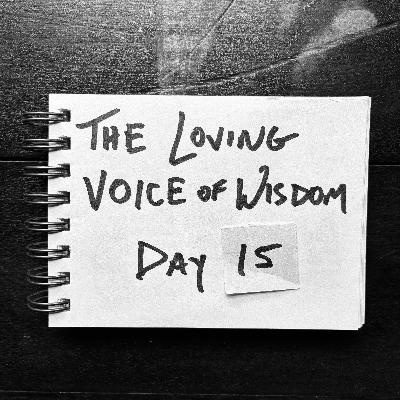 THE LOVING
VOICE OF WISDOM
DAY 15